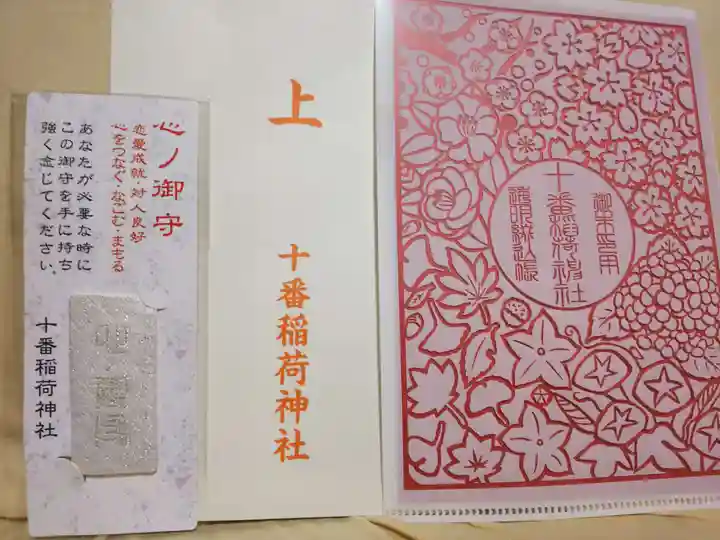 心ノ御守
恋愛成就 対人良好
心をつなぐ・なごむ・まもる
あなたが必要な時に
この御守を手に持ち
強く念じてください。
十番稲荷神社
上
十番稲荷神社
御朱印用
十番稲荷神社
透明綴込帳